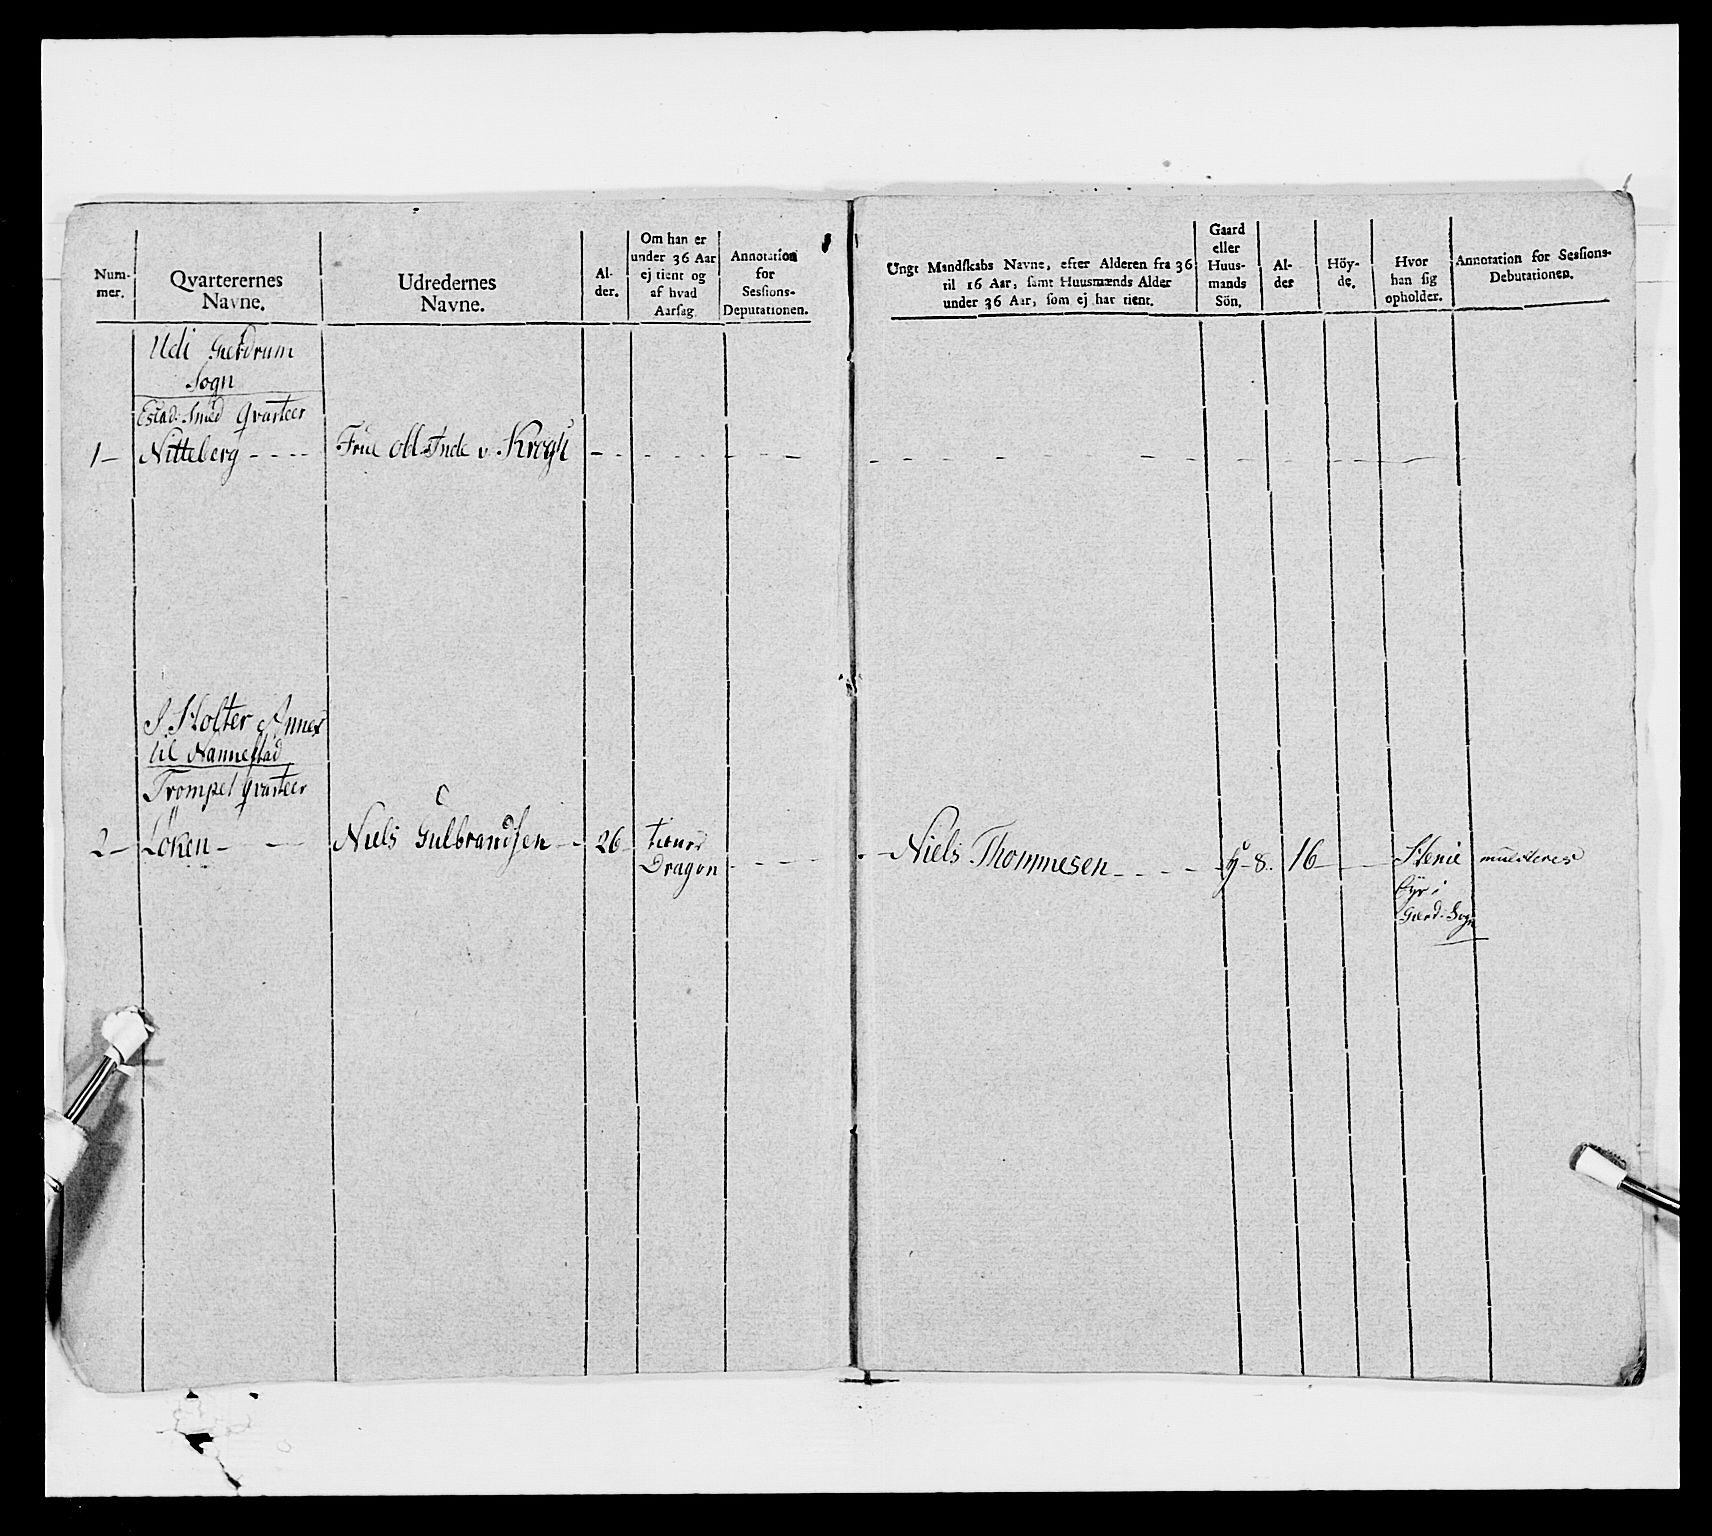 Num-
mer.
Qvarterernes
Navne.
Udredernes
Navne.
Al-
der.
Om han er
under 36 Aar
ej tient og
af hvad
Aarsag
Annotation
for
Sessions-
Deputationen.
Ungt Mandskabs Navne, efter Alderen fra 36
til 16 Aar, samt Huusmænds Alder
under 36 Aar, som ej har tient.
Gaard
eller
Huus-
mands
Sön.
Al-
der
Höy-
de.
Hvor
han sig
opholder.
Annotation for Sessions-
Deputationen.
Udi Gierdrum
Sogn
Estad: Smed Qvarteer
1 - Nitteberg - - - - Frue v. Krogh - - - - - -
I Holter Annex
til Nannestad
Trompet Qvarteer
2 - Löken - - - Niels Gulbrandsen - - 26 tiener
Dragon - - - -
- Niels Thommesen - - - - G - 8. 16 - - Stenie
Byr i
Gierd: Sogn